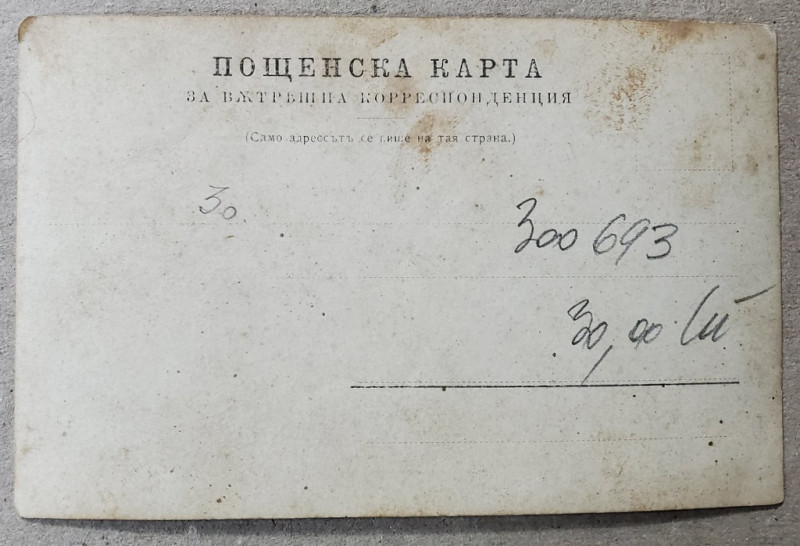 ПОЩЕНСКА КАРТА
ЗА ВѪТРѢШНА КОРРЕСПОНДЕНЦИЯ
(Само адрессътъ се пише на тая страна.)
30.
300 693
30,00